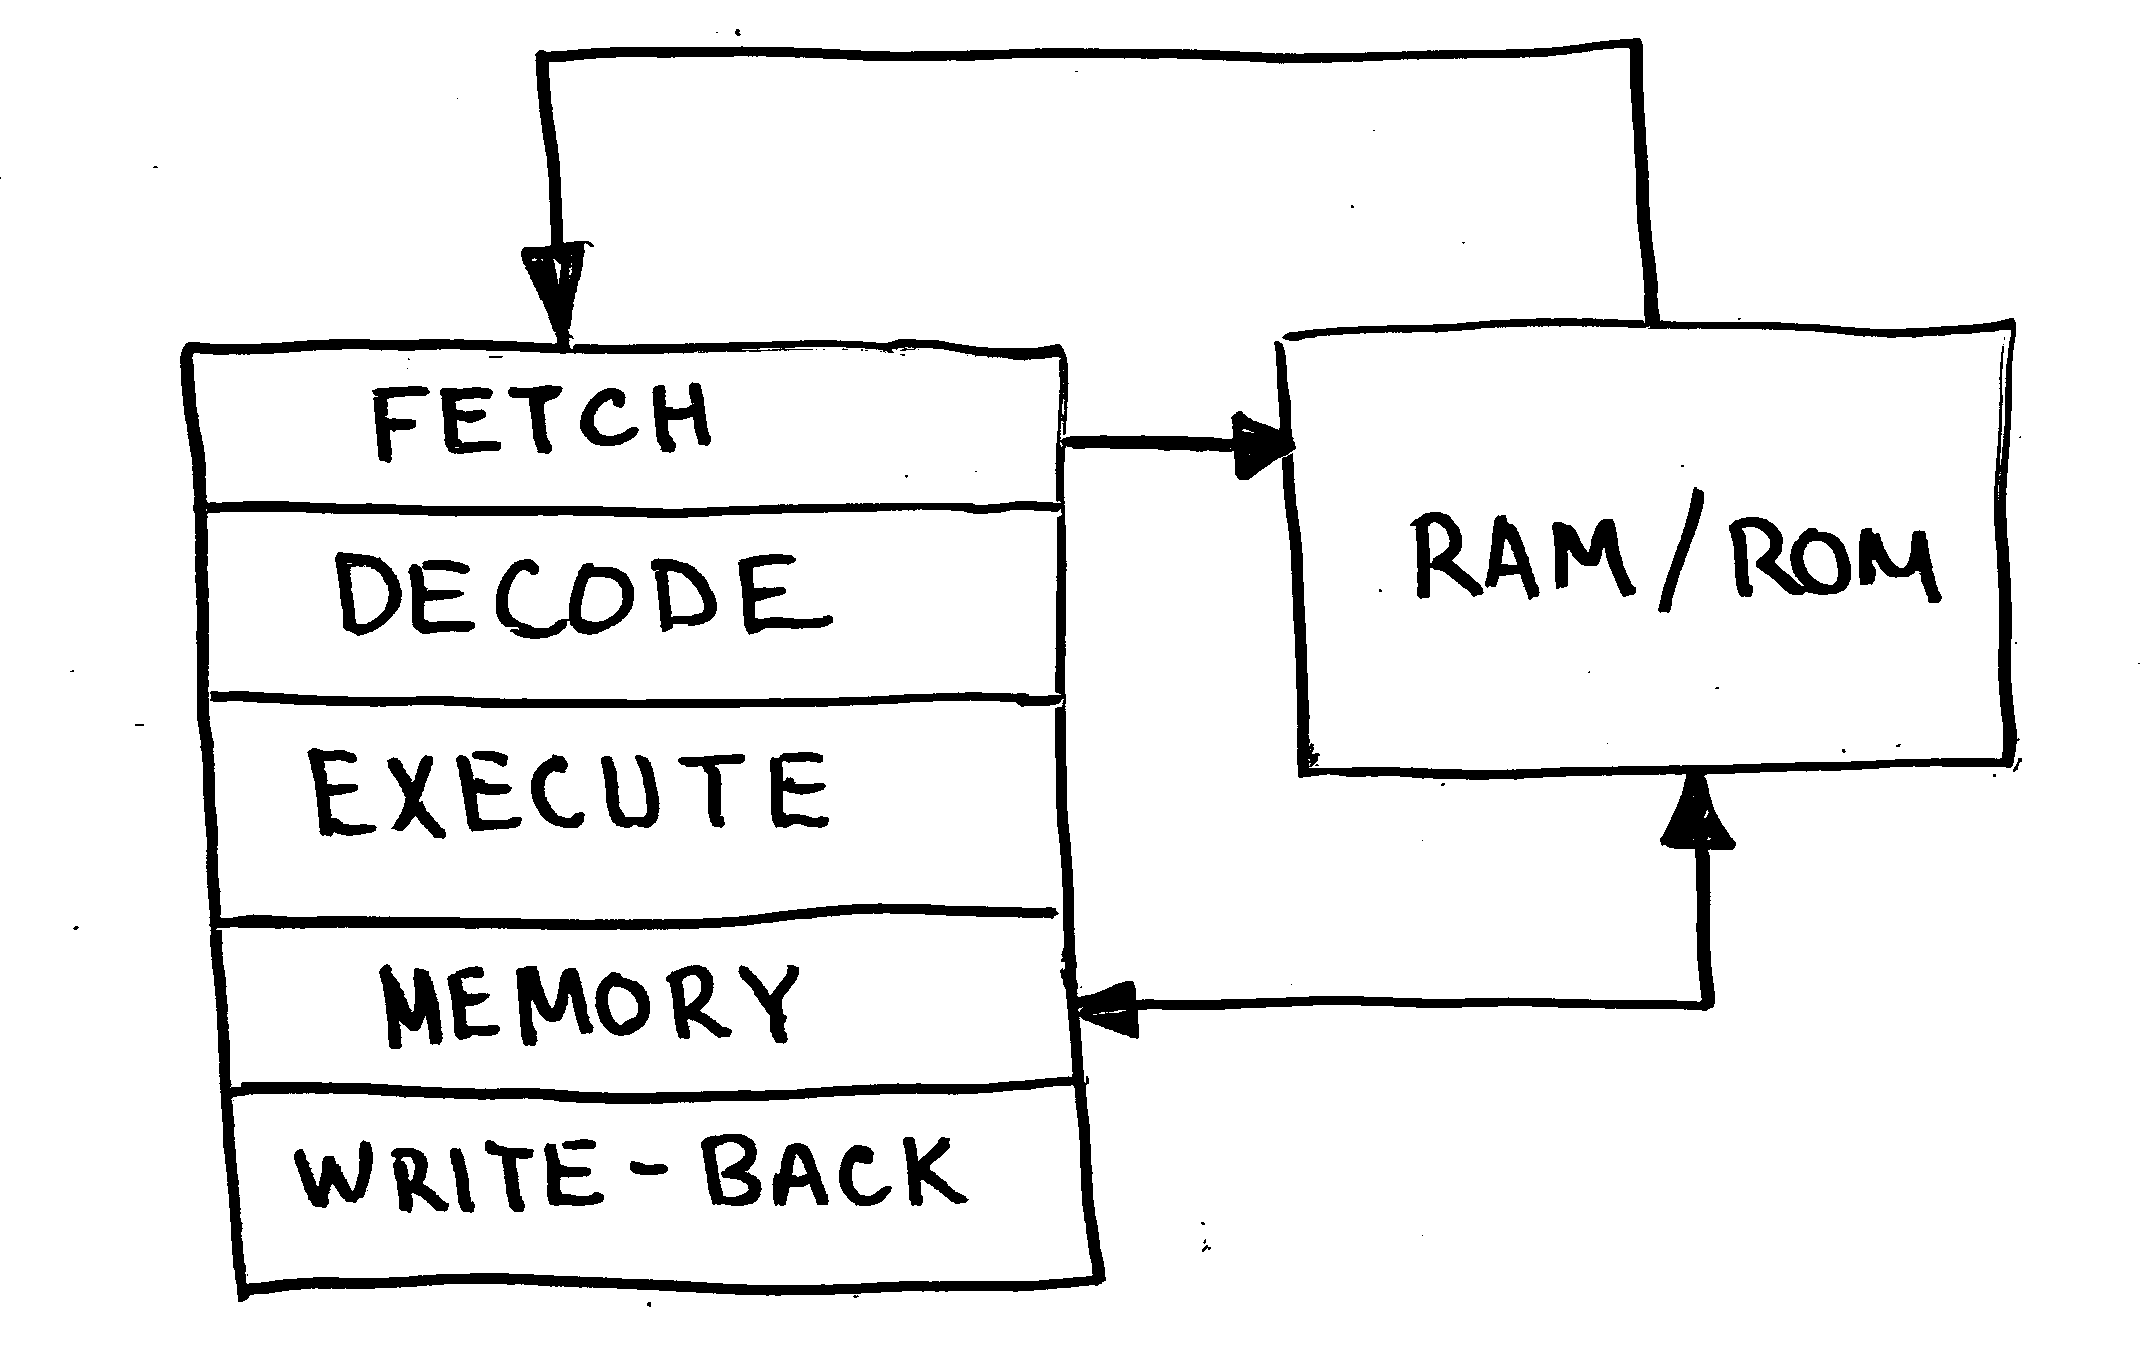 FETCH
DECODE
EXECUTE
MEMORY
WRITE-BACK
RAM/ROM